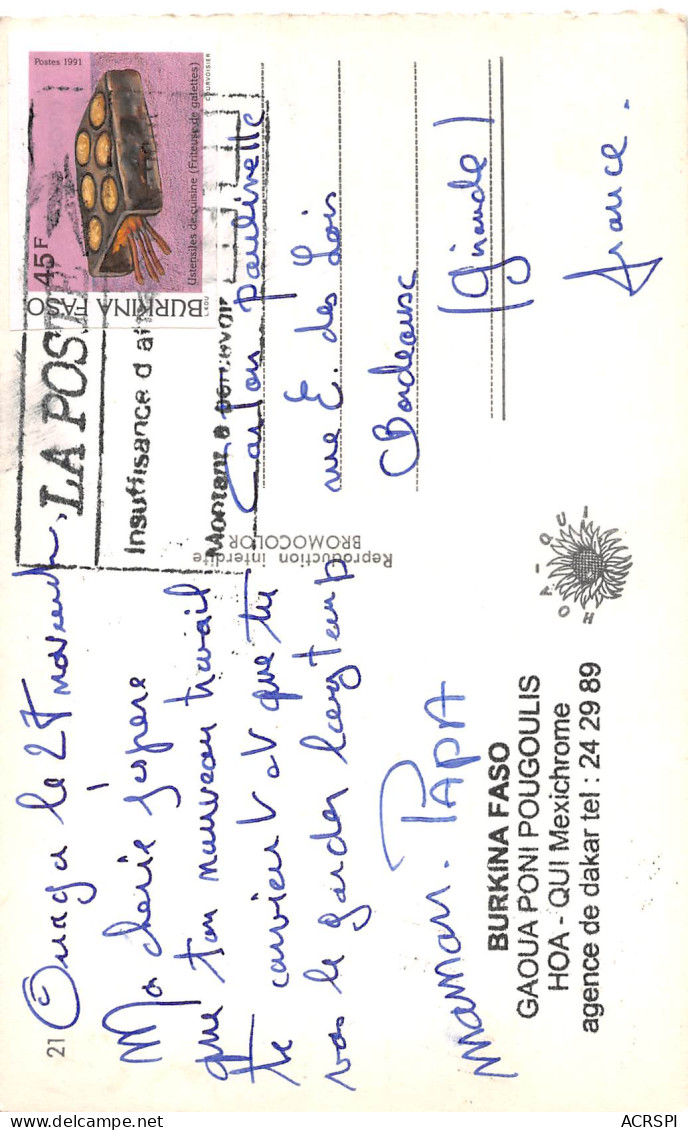 21
Ouaga le 27 novemb,
Ma chérie j'espère
que ton nouveau travail
te convient et que tu
vas le garder longtemps
maman. PAPA
BURKINA FASO
GAOUA PONI POUGOULIS
HOA - QUI Mexichrome
agence de dakar tel : 24 29 89
HOA-QUI
Reproduction interdite
BROMOCOLOR
Postes 1991
COURVOISIER
Ustensiles de cuisine (Friteuse de galettes)
45F
BURKINA FASO
LA POS
Insuffisance d'a
Montant à percevoir
paulinette
rue E. des Lois
Bordeaux
(Gironde)
France.
ACRSPI